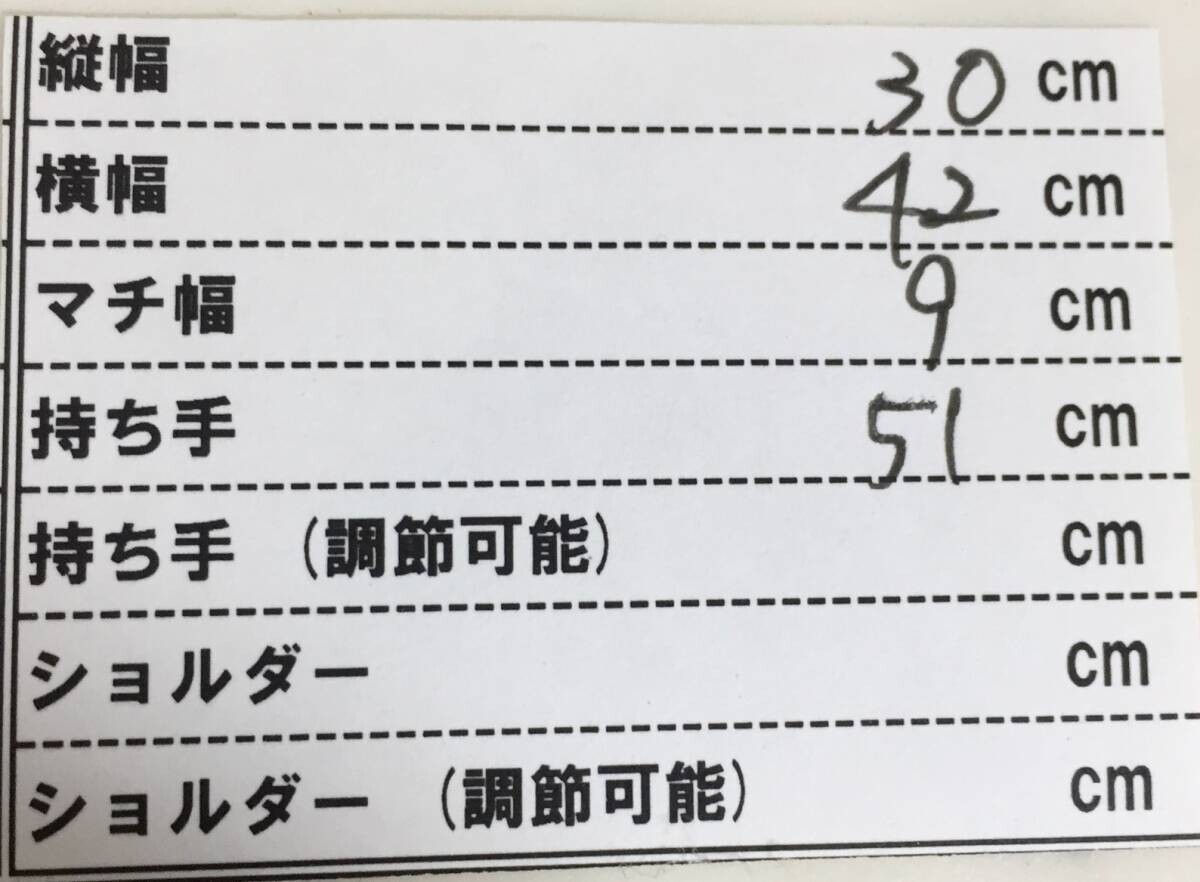 縦幅 30 cm
横幅 42 cm
マチ幅 9 cm
持ち手 51 cm
持ち手 (調節可能) cm
ショルダー cm
ショルダー (調節可能) cm